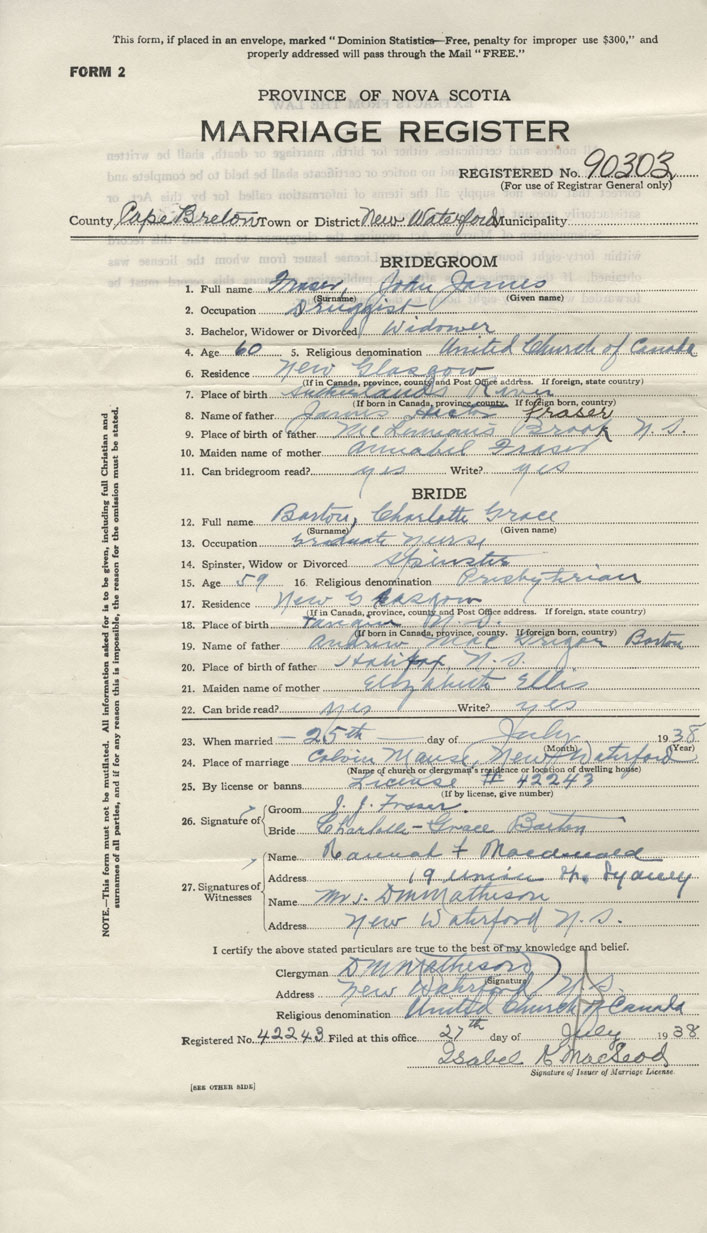 This form, if placed in an envelope, marked "Dominion Statistics—Free, penalty for improper use $300," and
properly addressed will pass through the Mail "FREE."
FORM 2
PROVINCE OF NOVA SCOTIA
MARRIAGE REGISTER
REGISTERED No. 90303
(For use of Registrar General only)
County Cape Breton Town or District New Waterford Municipality
BRIDEGROOM
1. Full name Fraser, John James
(Surname) (Given name)
2. Occupation Druggist
3. Bachelor, Widower or Divorced Widower
4. Age 60 5. Religious denomination United Church of Canada
6. Residence New Glasgow
(If in Canada, province, county and Post Office address. If foreign, state country)
7. Place of birth Sutherlands River
(If born in Canada, province, county. If foreign born, country)
8. Name of father James Fraser
9. Place of birth of father McLennans Brook N. S.
10. Maiden name of mother Annabel Fraser
11. Can bridegroom read? yes Write? yes
BRIDE
12. Full name Barton, Charlotte Grace
(Surname) (Given name)
13. Occupation Graduate Nurse
14. Spinster, Widow or Divorced Spinster
15. Age 59 16. Religious denomination Presbyterian
17. Residence New Glasgow
(If in Canada, province, county and Post Office address. If foreign, state country)
18. Place of birth
(If born in Canada, province, county. If foreign born, country)
19. Name of father Andrew MacGregor Barton
20. Place of birth of father Halifax, N. S.
21. Maiden name of mother Elizabeth Ellis
22. Can bride read? yes Write? yes
23. When married — 25th — day of July 1938
(Month) (Year)
24. Place of marriage Calvin Manse, New Waterford
(Name of church or clergyman's residence or location of dwelling house)
25. By license or banns License # 42243
(If by license, give number)
26. Signature of
Groom J. J. Fraser.
Bride Charlotte-Grace Barton
27. Signatures of Witnesses
Name Macdonald
Address 19 Union St. Sydney
Name Mrs. DMMatheson
Address New Waterford N. S.
I certify the above stated particulars are true to the best of my knowledge and belief.
Clergyman DMMatheson
(Signature)
Address New Waterford N. S.
Religious denomination United Church of Canada
Registered No. 42243 Filed at this office 27th day of July 1938
Isabel K MacLeod
Signature of Issuer of Marriage License.
[SEE OTHER SIDE]
NOTE.—This form must not be mutilated. All information asked for is to be given, including full Christian and
surnames of all parties, and if for any reason this is impossible, the reason for the omission must be stated.